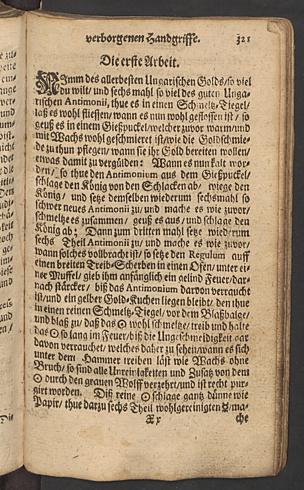 verborgenen Handgriffe. 321
Die erste Arbeit.
NImm des allerbesten Ungarischen Golds/so viel
du wilt/ und sechs mahl so viel des guten Unga-
rischen Antimonii, thue es in einen Schmeltz-Tiegel/
laß es wohl fliessen/wann es nun wohl geflossen ist/ so
geuß es in einem Gießpuckel/welcher zuvor warm/und
mit Wachs wohl geschmieret ist/wie die Goldschmie-
de zu thun pflegen/ wann sie ihr Gold bereiten wollen/
etwas damit zu vergülden: Wann es nun kalt wor-
den/ so thue den Antimonium aus dem Gießpuckel/
schlage den König von den Schlacken ab/ wiege den
König/ und setze demselben wiederum sechsmahl so
schwer neues Antimonii zu/ und mache es wie zuvor/
schmeltze es zusammen/ geuß es aus/ und schlage den
König ab: Dann zum dritten mahl setze wiederum
sechs Theil Antimonii zu/ und mache es wie zuvor/
wann solches vollbracht ist/ so setze den Regulum auff
einen breiten Treib-Scherben in einen Ofen/ unter ei-
ne Muffel/ gieb ihm anfänglich ein gelind Feuer/dar-
nach stärcker/ biß das Antimonium darvon verraucht
ist/und ein gelber Gold-Kuchen liegen bleibt/ den thue
in einen reinen Schmeltz-Tiegel/ vor dem Blaßbalge/
und blaß zu/ daß das ☉ wohl schmeltze/ treib und halte
das ☉ so lang im Feuer/ biß die Ungeschmeidigkeit gar
davon verrauchet/ welches daher zu sehen/wann es sich
unter dem Hammer treiben läst wie Wachs ohne
Bruch/ so sind alle Unreinigkeiten und Zusatz von dem
☉ durch den grauen Wolff verzehrt/und ist recht pur-
girt worden. Diß reine ☉ schlage gantz dünne wie
Papir/ thue darzu sechs Theil wohlgereinigten ☿/ma-
Xx che